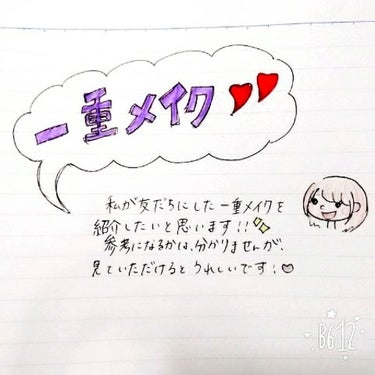 一重メイク
私が友だちにした一重メイクを
紹介したいと思います!!
参考になるかは、分かりませんが、
見ていただけるとうれしいです!
B612